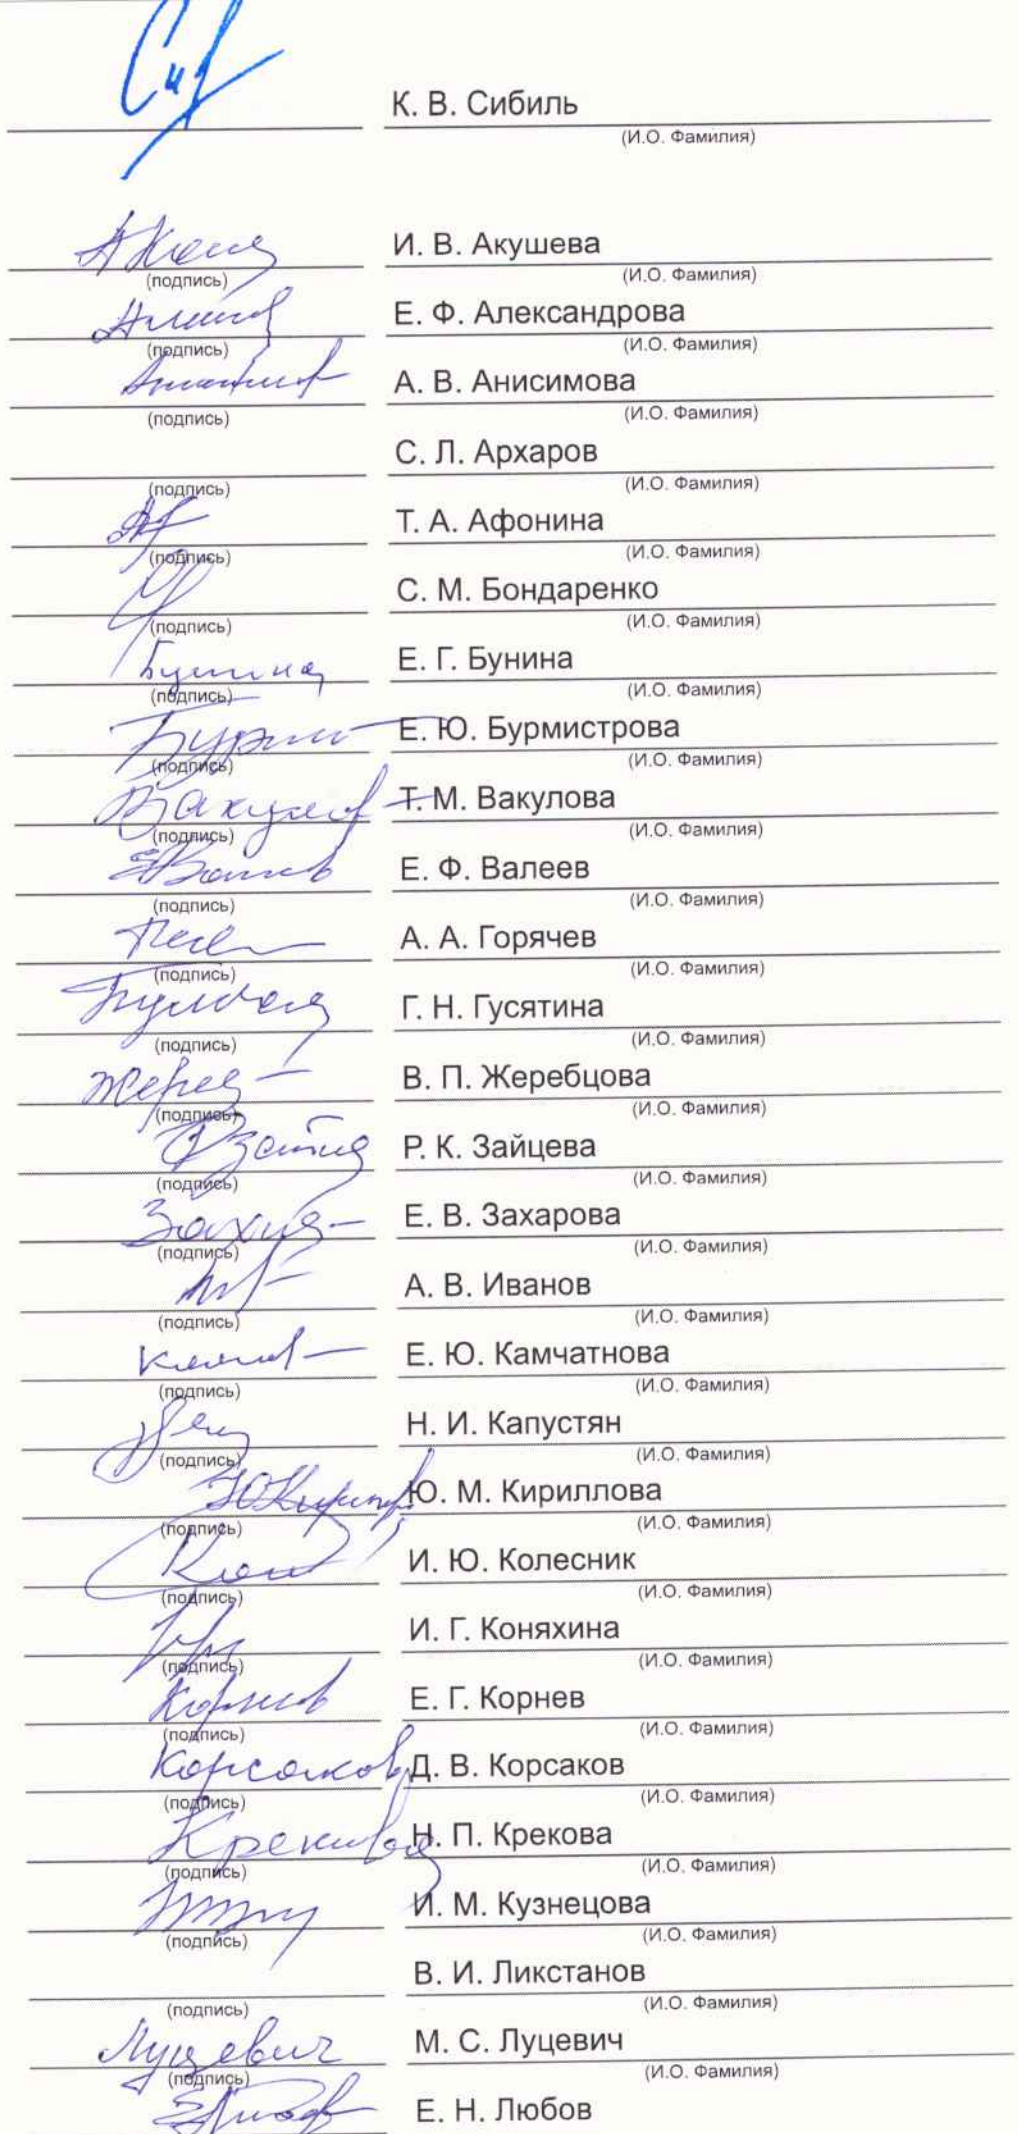 К. В. Сибиль
(И.О. Фамилия)
И. В. Акушева
(подпись) (И.О. Фамилия)
Е. Ф. Александрова
(подпись) (И.О. Фамилия)
А. В. Анисимова
(подпись) (И.О. Фамилия)
С. Л. Архаров
(подпись) (И.О. Фамилия)
Т. А. Афонина
(подпись) (И.О. Фамилия)
С. М. Бондаренко
(подпись) (И.О. Фамилия)
Бунина Е. Г. Бунина
(подпись) (И.О. Фамилия)
Е. Ю. Бурмистрова
(подпись) (И.О. Фамилия)
Т. М. Вакулова
(подпись) (И.О. Фамилия)
Е. Ф. Валеев
(подпись) (И.О. Фамилия)
А. А. Горячев
(подпись) (И.О. Фамилия)
Г. Н. Гусятина
(подпись) (И.О. Фамилия)
В. П. Жеребцова
(подпись) (И.О. Фамилия)
Р. К. Зайцева
(подпись) (И.О. Фамилия)
Е. В. Захарова
(подпись) (И.О. Фамилия)
А. В. Иванов
(подпись) (И.О. Фамилия)
Е. Ю. Камчатнова
(подпись) (И.О. Фамилия)
Н. И. Капустян
(подпись) (И.О. Фамилия)
Ю. М. Кириллова
(подпись) (И.О. Фамилия)
И. Ю. Колесник
(подпись) (И.О. Фамилия)
И. Г. Коняхина
(подпись) (И.О. Фамилия)
Е. Г. Корнев
(подпись) (И.О. Фамилия)
Корсаков Д. В. Корсаков
(подпись) (И.О. Фамилия)
Н. П. Крекова
(подпись) (И.О. Фамилия)
И. М. Кузнецова
(подпись) (И.О. Фамилия)
В. И. Ликстанов
(подпись) (И.О. Фамилия)
Луцевич М. С. Луцевич
(подпись) (И.О. Фамилия)
Е. Н. Любов